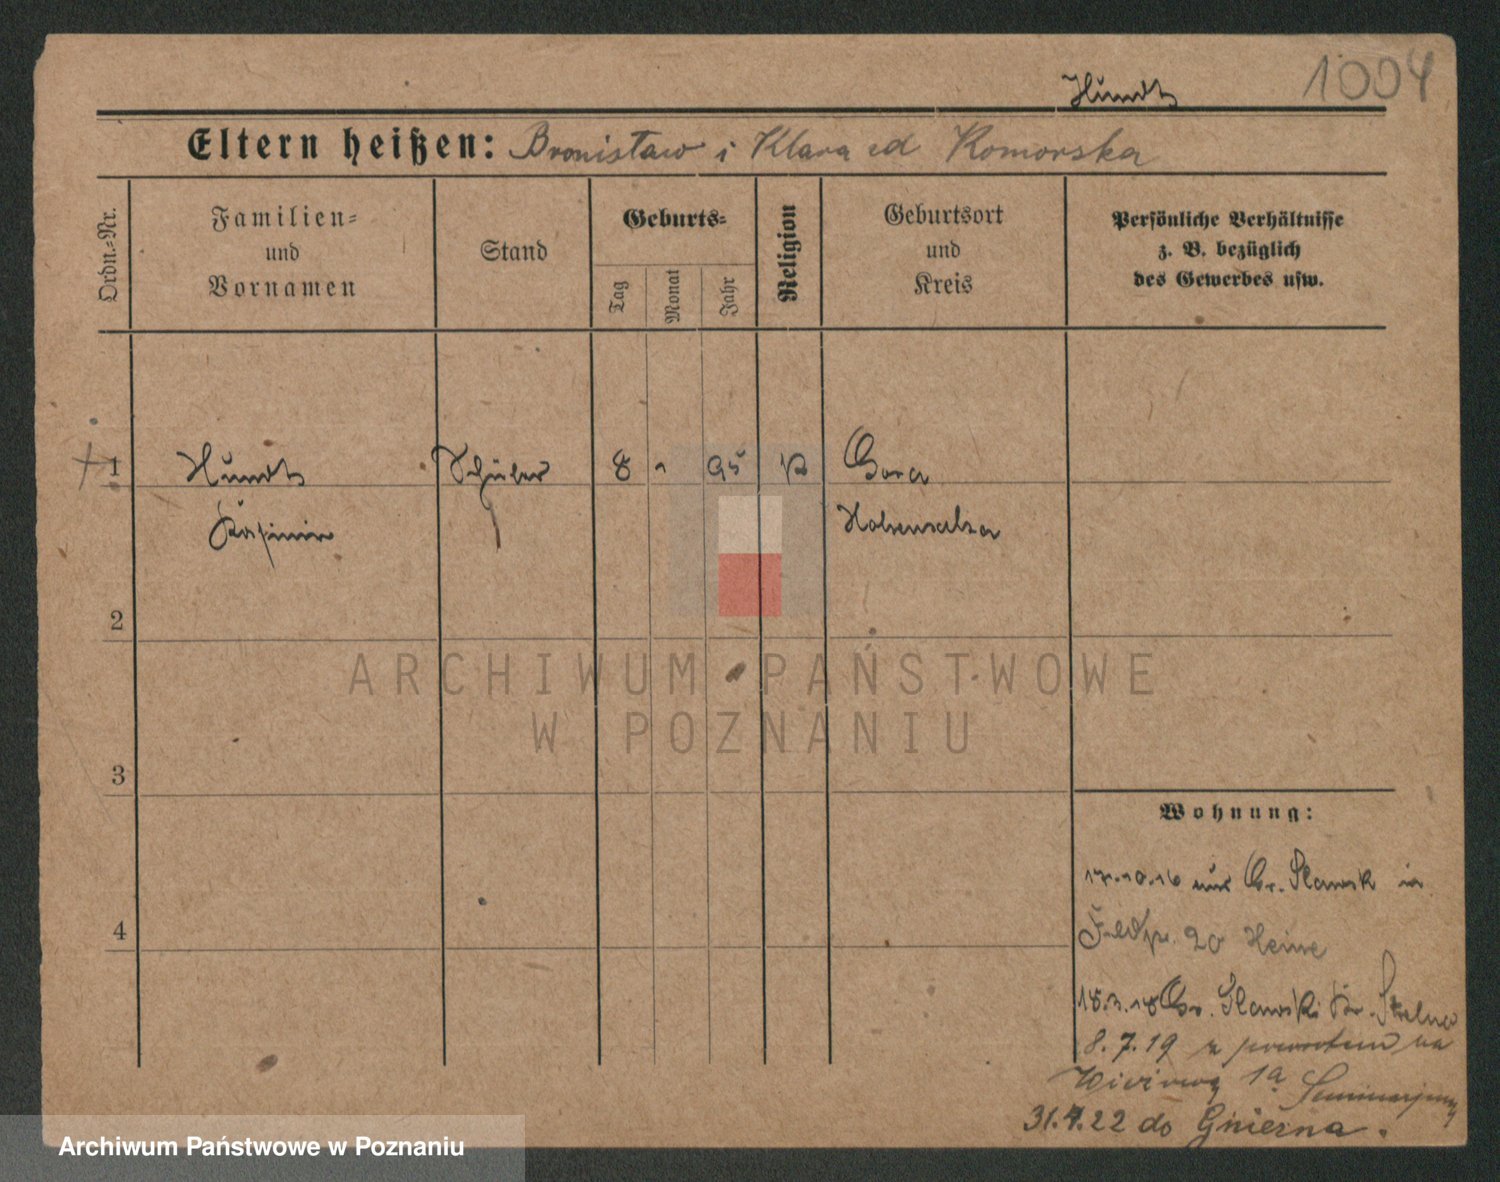 1004
Hundt
Eltern heißen: Bronisław i Klara zd Komorska
Ordn.-Nr.
Familien-
und
Vornamen
Stand
Geburts-
Tag
Monat
Jahr
Religion
Geburtsort
und
Kreis
Persönliche Verhältnisse
z. B. bezüglich
des Gewerbes usw.
1
Hundt Schüler 8 95 Gora
Kasimir Hohensalza
2
ARCHIWUM PAŃSTWOWE
W POZNANIU
3
Wohnung:
17.10.16 Gr. Slawsk in
4
20 Heine
18.3.18 Gr. Slawsk Kr. Strelno
8.7.19 z powrotem na
1a
31.7.22 do Gniezna.
Archiwum Państwowe w Poznaniu